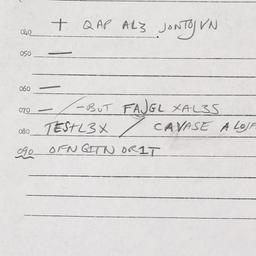 040 + QAP AL3 JONTOJVN
050 —
060 —
070 — / -BUT FAJGL XAL35
080 TESTL3X / CAVASE ALOJF
090 OFNGITN OR1T